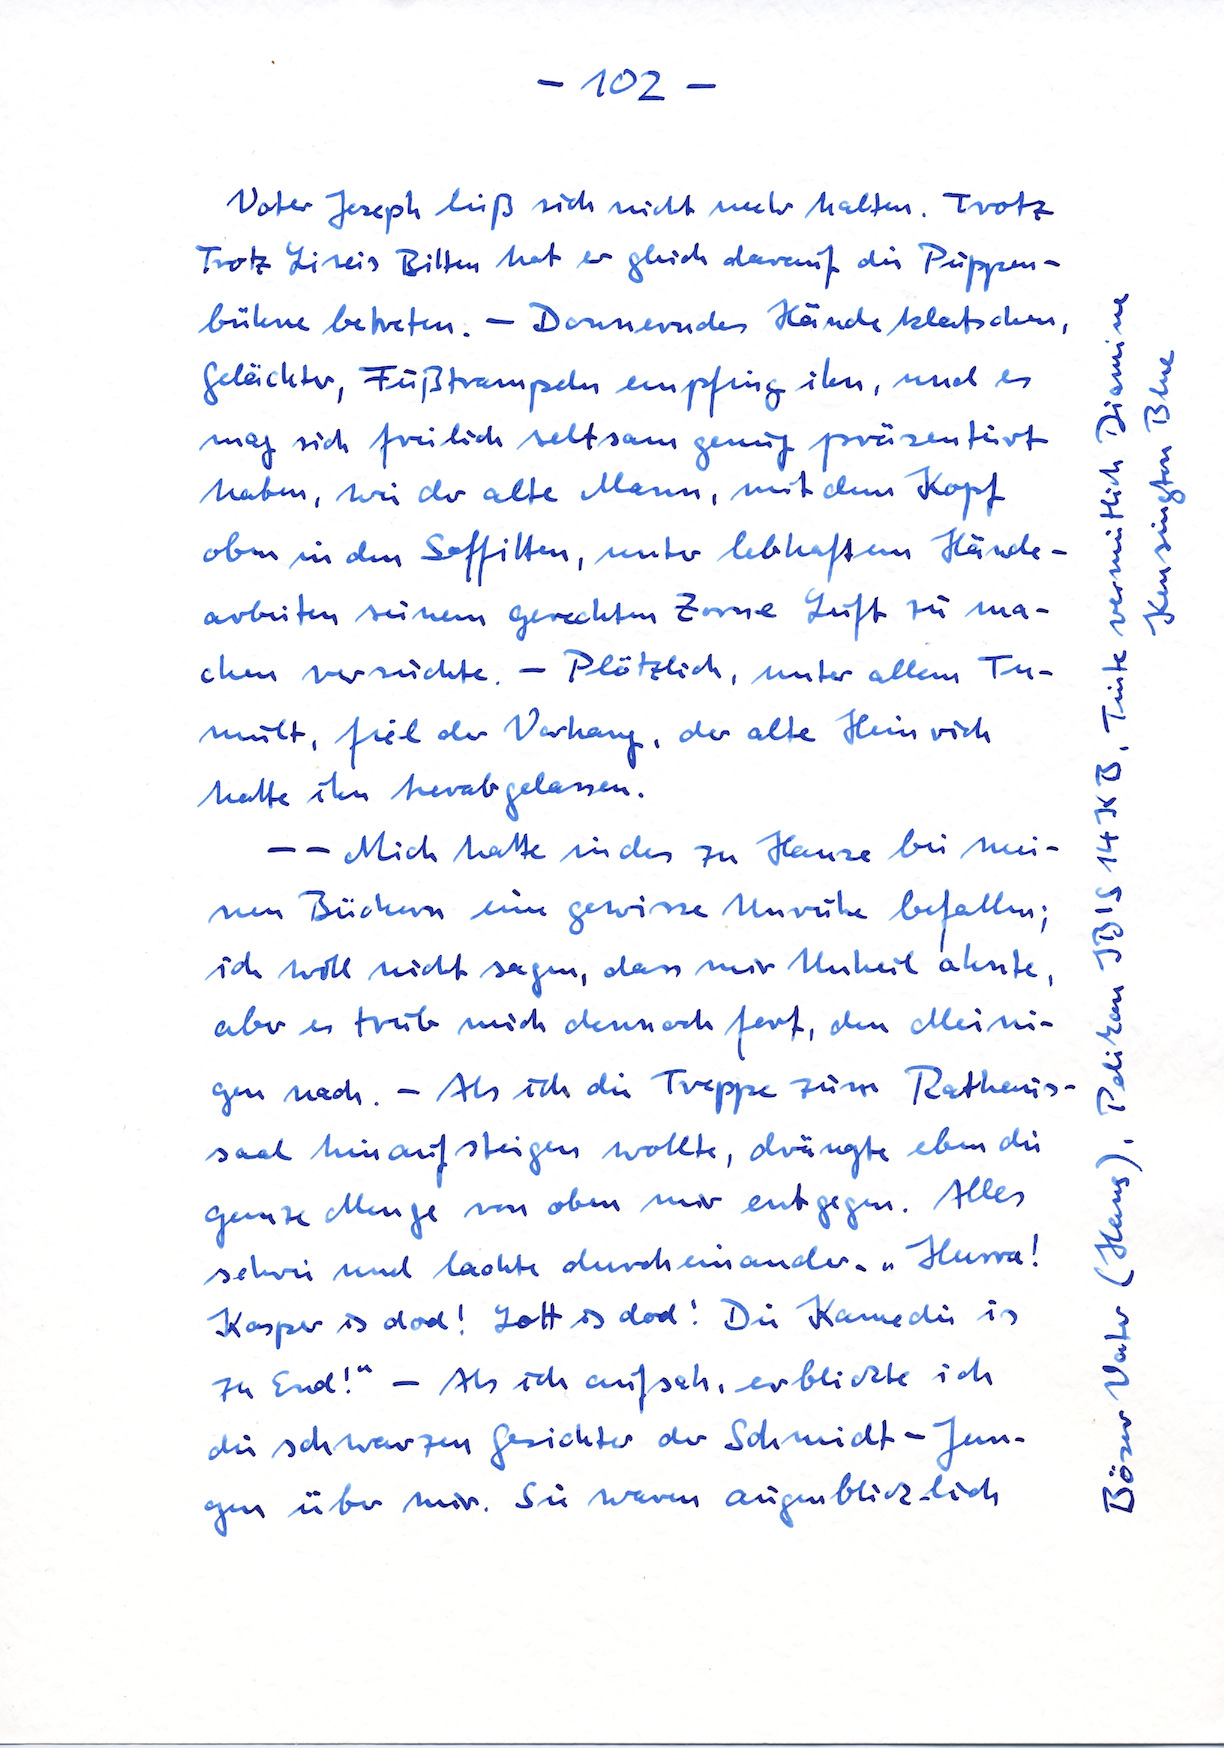 - 102 -
Vater Joseph ließ sich nicht mehr halten. Trotz
Trotz Liseis Bitten hat er gleich darauf die Puppen-
bühne betreten. - Donnerndes Händeklatschen,
Gelächter, Fußtrampeln empfing ihn, und es
mag sich freilich seltsam genug präsentiert
haben, wie der alte Mann, mit dem Kopf
oben in den Soffitten, unter lebhaftem Hände-
arbeiten seinem gerechten Zorne Luft zu ma-
chen versuchte. - Plötzlich, unter allem Tu-
mult, fiel der Vorhang, der alte Heinrich
hatte ihn herabgelassen.
-- Mich hatte indes zu Hause bei mei-
nen Büchern eine gewisse Unruhe befallen;
ich will nicht sagen, dass mir Unheil ahnte,
aber es trieb mich dennoch fort, den Meini-
gen nach. - Als ich die Treppe zum Rathaus-
saal hinaufsteigen wollte, drängte eben die
ganze Menge von oben mir entgegen. Alles
schrie und lachte durcheinander. „Hurra!
Kasper is dod! Lott is dod! Die Kamedie is
zu End!“ - Als ich aufsah, erblickte ich
die schwarzen Gesichter der Schmidt-Jun-
gen über mir. Sie waren augenblicklich
Böser Vater (Hans), Pelikan IBIS 14KB, Tinte vermutlich Diamine
Kensington Blue